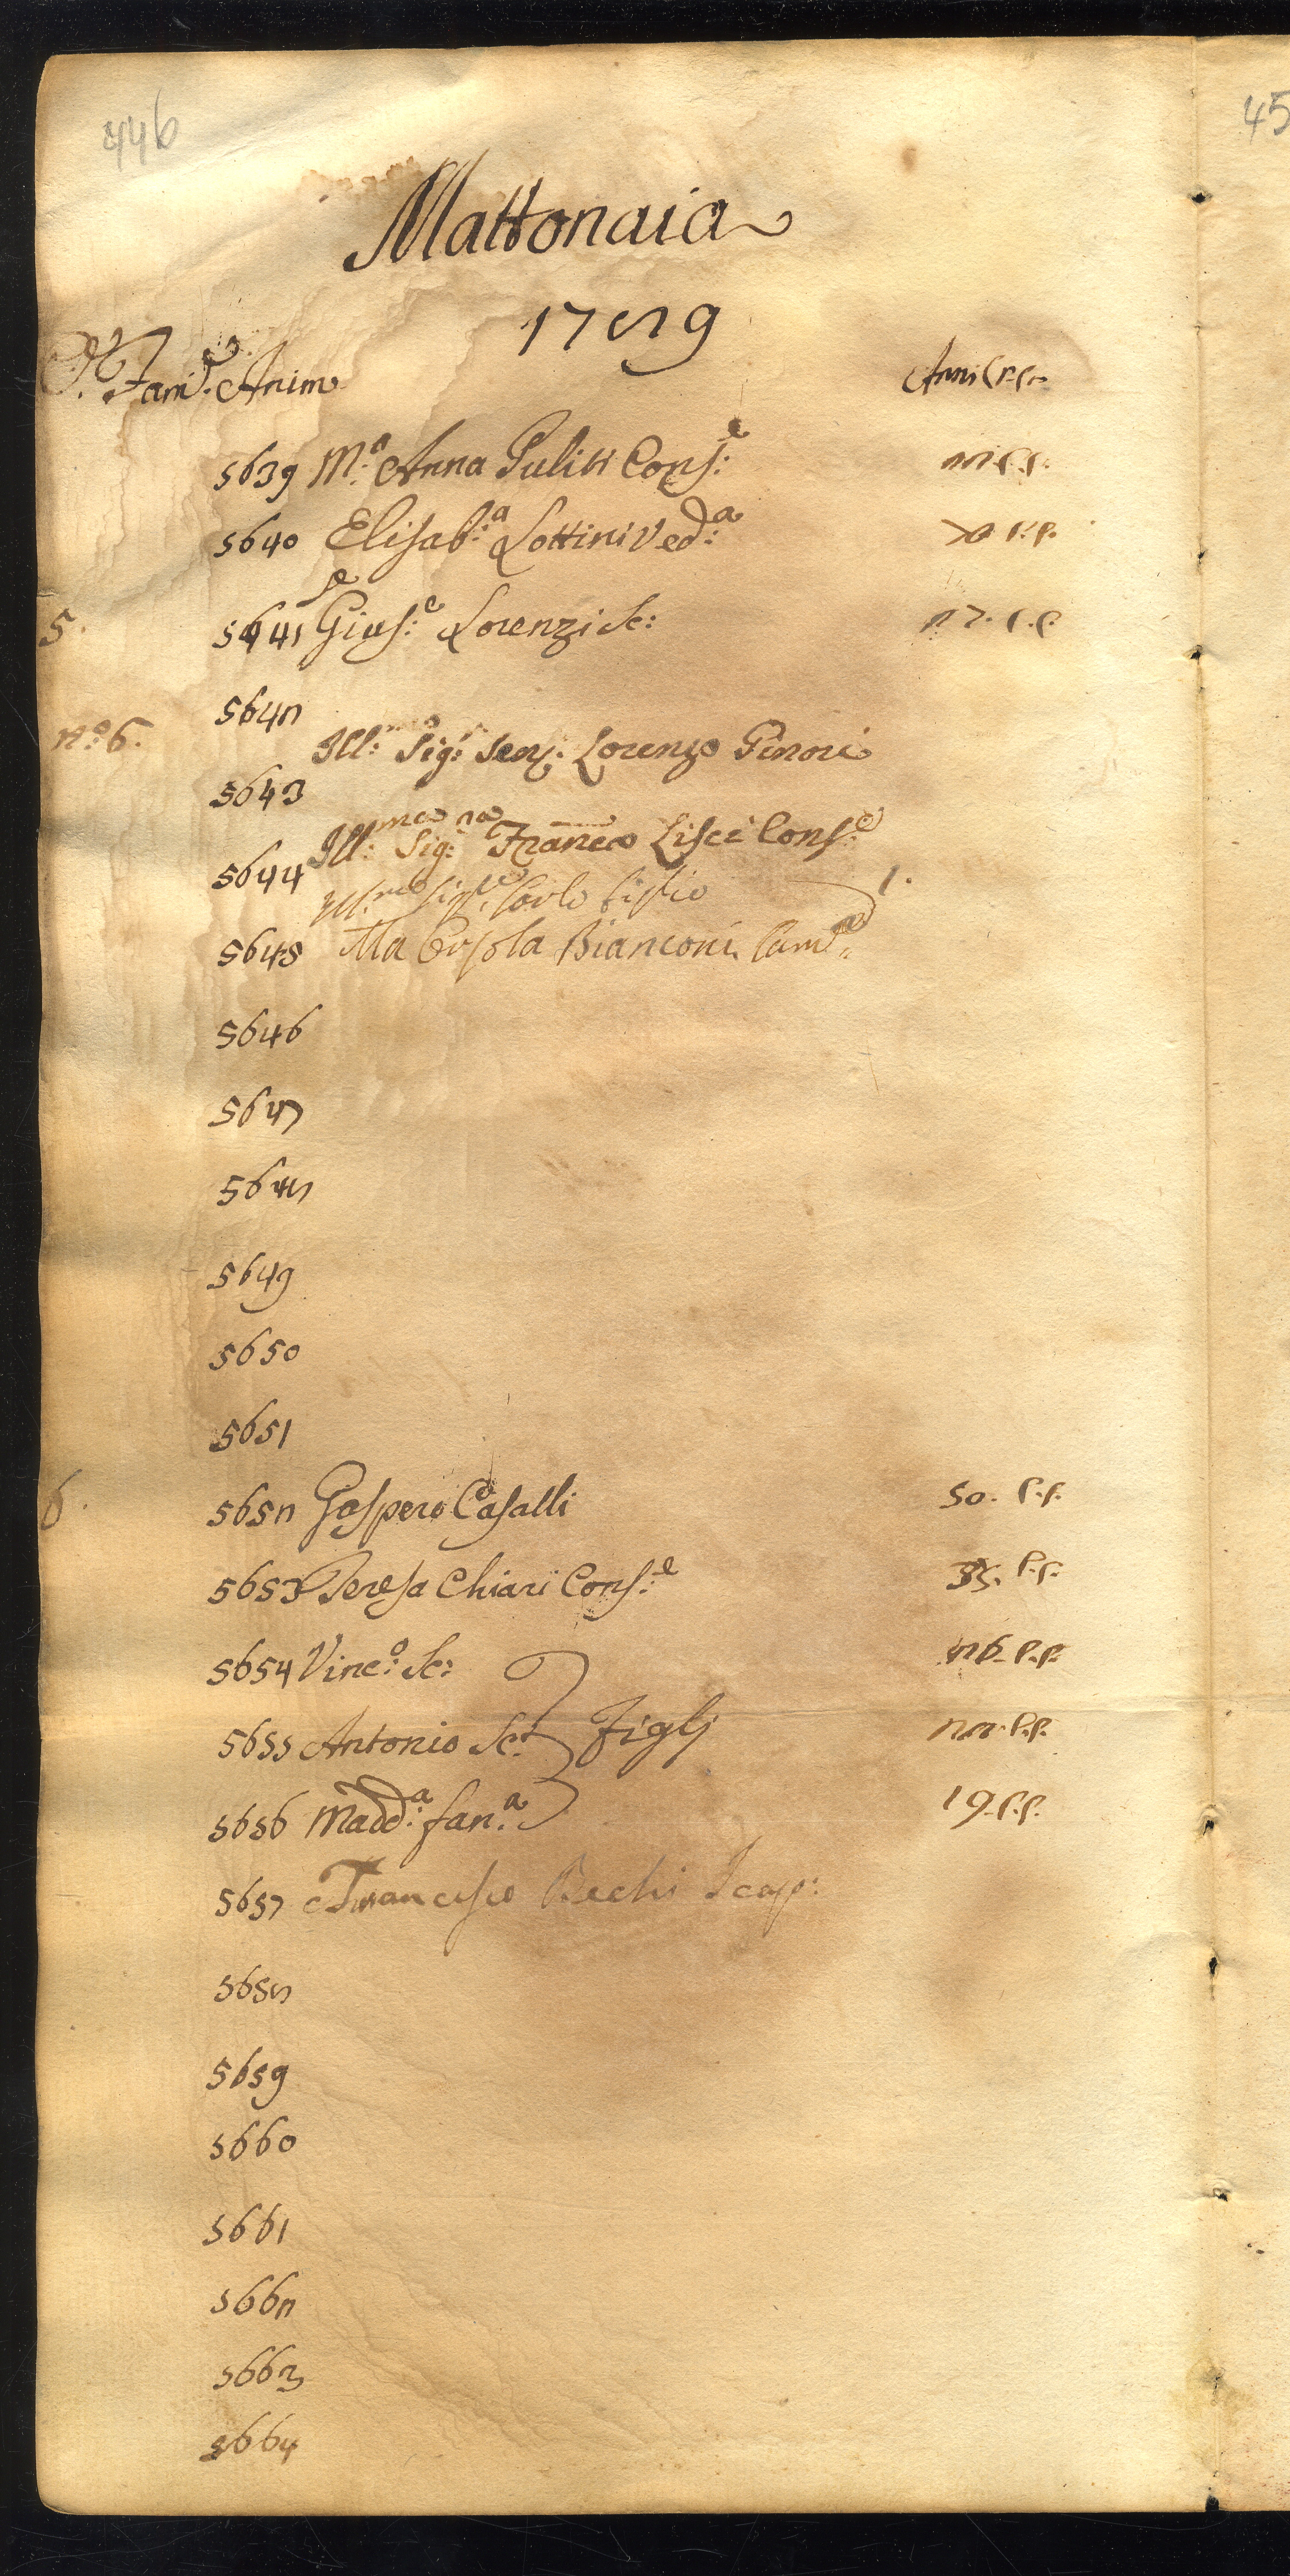 446
45
Mattonaia
1789
Fam. Anime
Anni C. P.
5639 M.ª Anna Puliti Cons.e
5640 Elisab.ª Lottini Ved.ª
5.
5641 Gius.e Lorenzi Sc:
27. C. C.
5642
n.º 6.
Ill.mo Sig.r Sen. Lorenzo Ginori
5643
Ill.ma Sig.ra Fran.ca Lisci Cons.e
5644
Ill.mo Sig.e Carlo figlio
1.
5645 Ma Orsola Bianconi Cam.ª
5646
5647
5648
5649
5650
5651
6.
5652 Gaspero Casalli
50. C. C.
5653 Teresa Chiari Cons.e
35. C. C.
5654 Vinc.º Sc:
26. C. C.
5655 Antonio Sc: Figlj
22. C. C.
5656 Madd.ª fan.ª
19. C. C.
5657 Francesco Bechi Scap:
5658
5659
5660
5661
5662
5663
5664